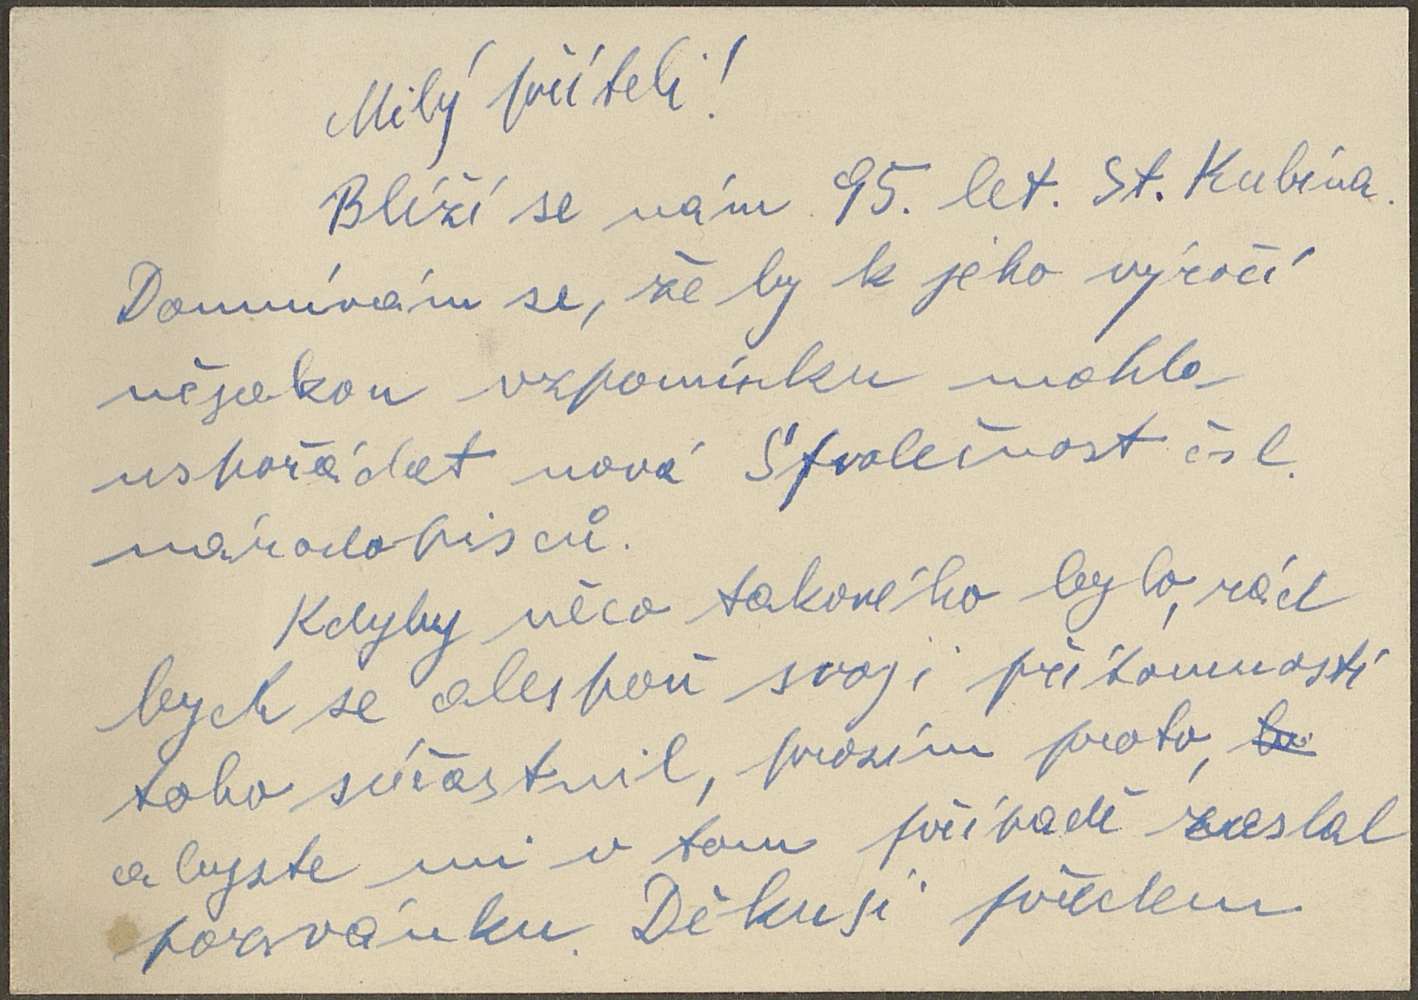 Milý příteli!
Blíží se nám 95. let. St. Kubína.
Domnívám se, že by k jeho výročí
nějakou vzpomínku mohla
uspořádat nová Společnost čsl.
národopisců.
Kdyby něco takového bylo, rád
bych se alespoň svoji přítomností
toho súčastnil, prosím proto,
abyste mi v tom případě zaslal
pozvánku. Děkuji předem